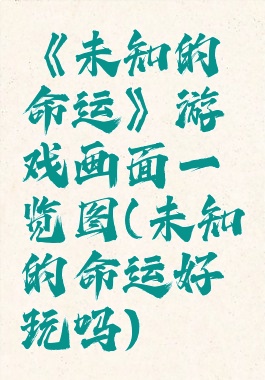 《未知的
命运》游
戏画面一
览图(未知
的命运好
玩吗)